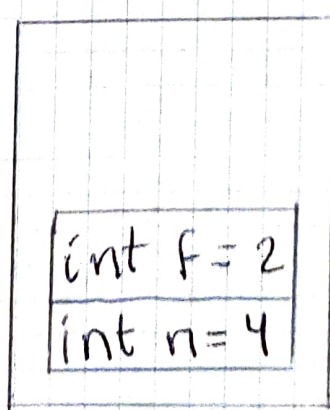 int f = 2
int n = 4